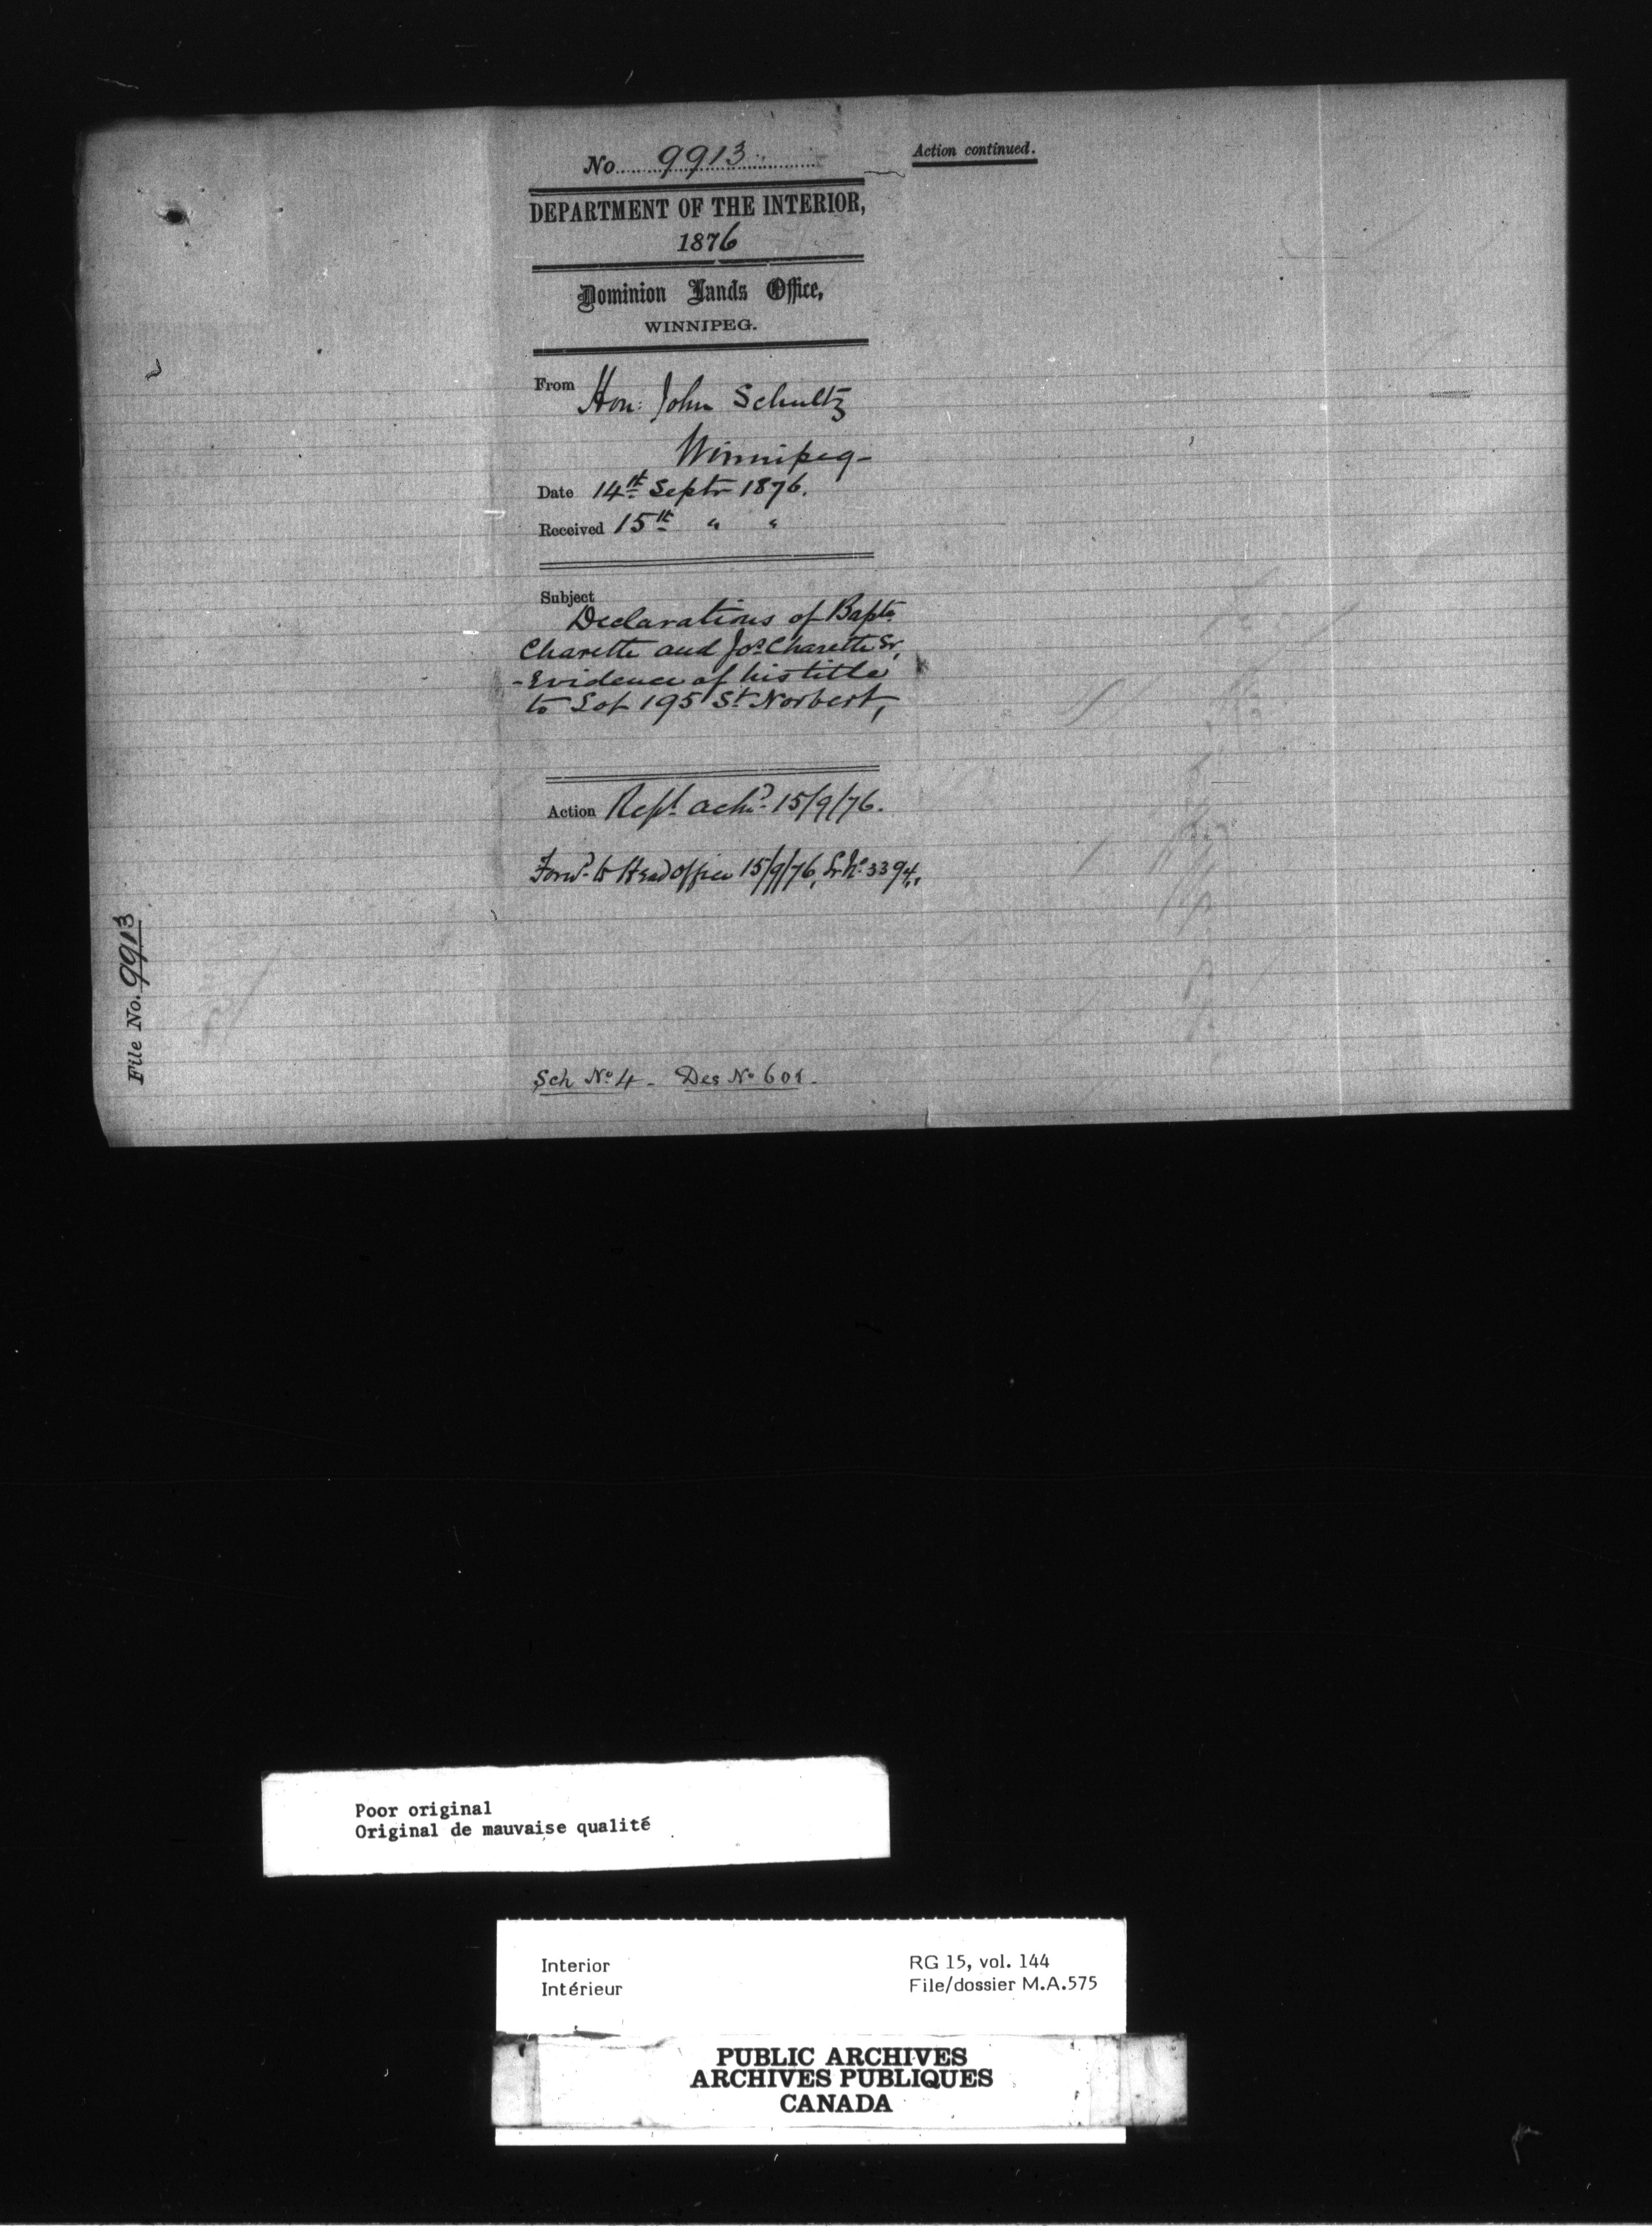 No. 9913
DEPARTMENT OF THE INTERIOR,
1876
Dominion Lands Office,
WINNIPEG.
From Hon: John Schultz
Winnipeg-
Date 14th Septr 1876.
Received 15th " "
Subject
Declarations of Bapte
Charette and Jos. Charette Sr,
- Evidence of his title
to Lot 195 St Norbert,
Action Rept. ackd. 15/9/76.
Forwd. to Head Office 15/9/76, Lr No. 3394,
Sch No 4 - Des No 601.
Action continued.
File No. 9913
Poor original
Original de mauvaise qualité
Interior
Intérieur
RG 15, vol. 144
File/dossier M.A.575
PUBLIC ARCHIVES
ARCHIVES PUBLIQUES
CANADA